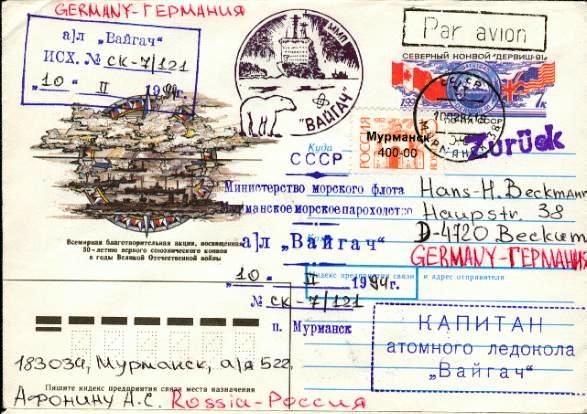 GERMANY-ГЕРМАНИЯ
а/л „Вайгач"
ИСХ. № СК-7/121
„10" II 1994г.
ММП
"ВАЙГАЧ"
Par avion
СЕВЕРНЫЙ КОНВОЙ "ДЕРВИШ-91"
Zurück
РОССИЯ
Мурманск
400-00
Куда
СССР
Министерство морского флота
Мурманское морское пароходство
а/л „Вайгач"
„10" II 1994г.
№ СК-7/121
п. Мурманск
Hans-H. Beckmann
Haupstr. 38
D-4720 Beckum
GERMANY-ГЕРМАНИЯ
Индекс предприятия связи и адрес отправителя
Всемирная благотворительная акция, посвященная
50-летию первого союзнического конвоя
в годы Великой Отечественной войны
КАПИТАН
атомного ледокола
„Вайгач"
183039, Мурманск, а/я 522,
Пишите индекс предприятия связи места назначения
Афонину А.С. Rossia-Россия